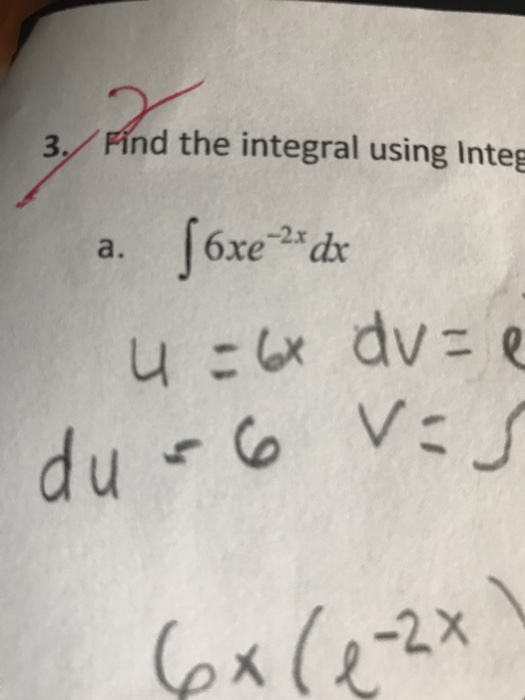 2
3. Find the integral using Integ
a. ∫6xe⁻²ˣdx
u = 6x dv = e
du = 6 v = ∫
6x(e⁻²ˣ)